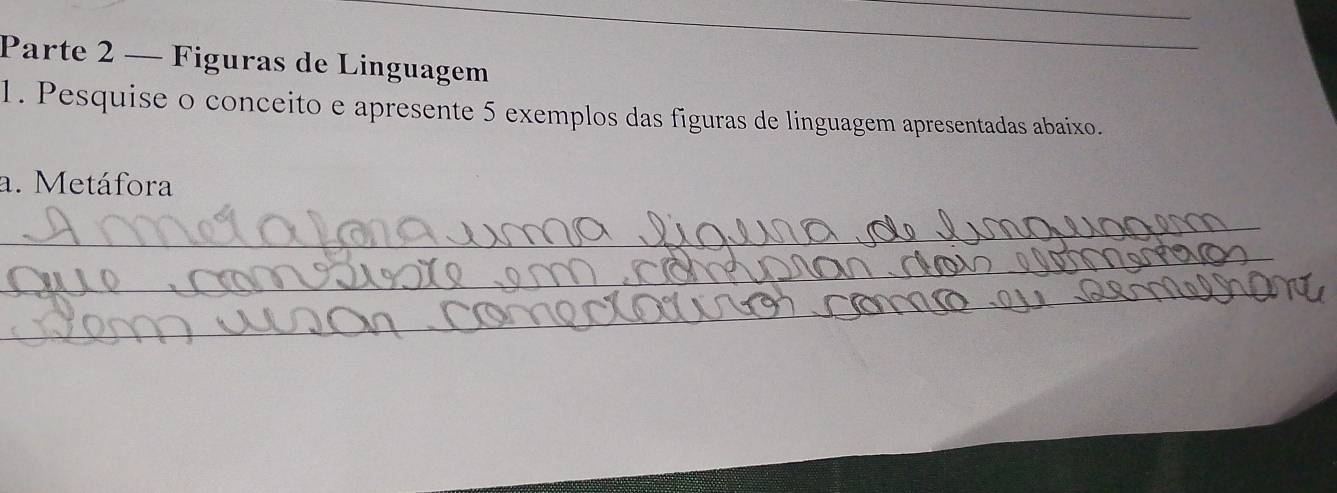 Parte 2 — Figuras de Linguagem
1. Pesquise o conceito e apresente 5 exemplos das figuras de linguagem apresentadas abaixo.
a. Metáfora
A metafora uma figura de linguagem
que consiste em comparar dois
sem usar como ou